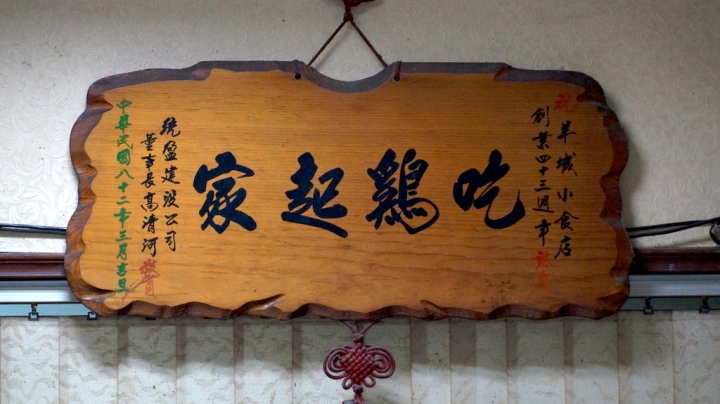 祝羊城小食店
創業四十三週年
吃鷄起家
統盈建設公司
董事長高清河
中華民國八十二年三月吉旦